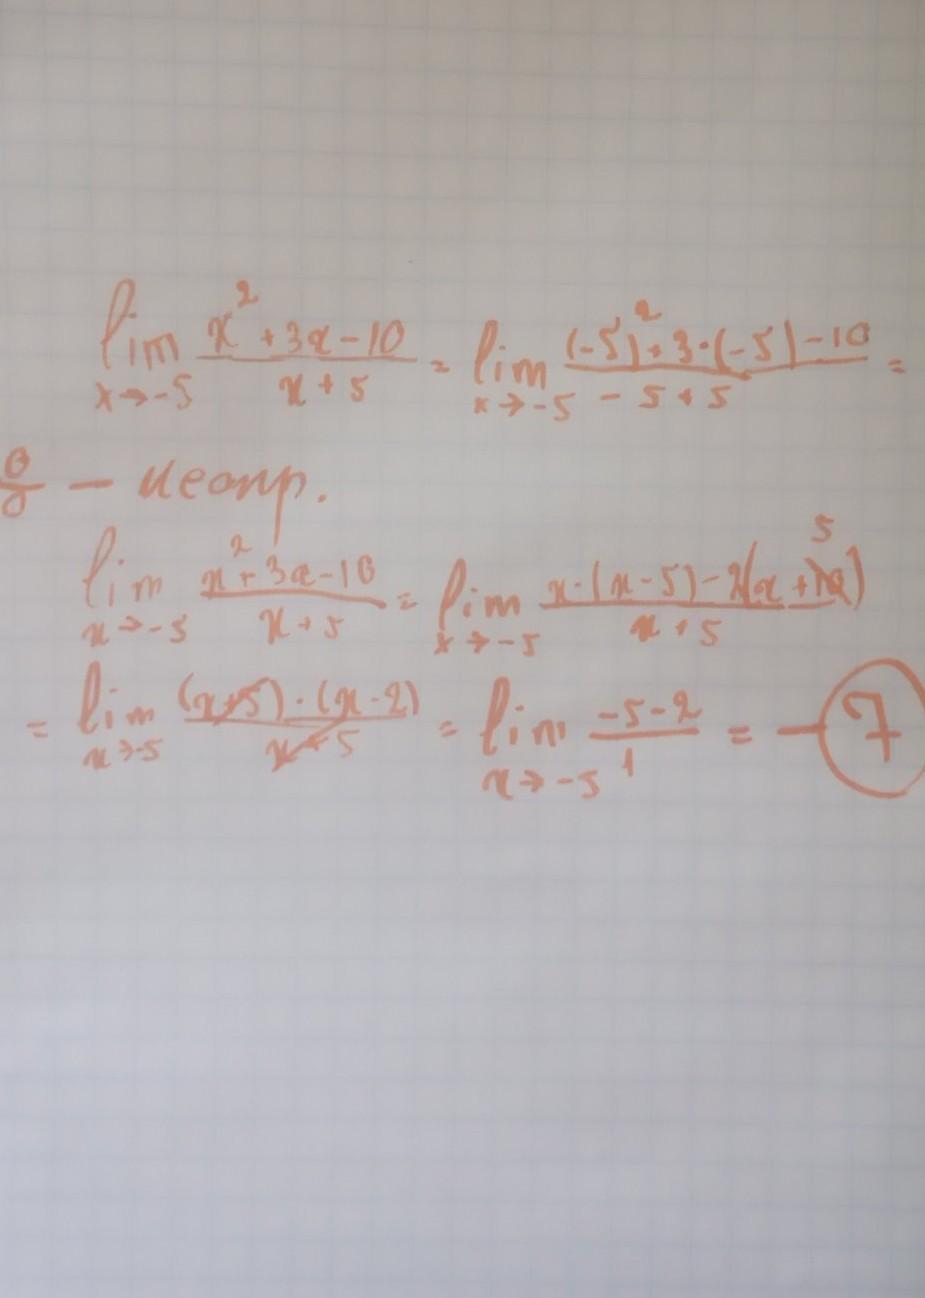 lim x→-5 (x² + 3x - 10)/(x + 5) = lim x→-5 ((-5)² + 3·(-5) - 10)/(-5 + 5) =
0/0 - неопр.
lim x→-5 (x² + 3x - 10)/(x + 5) = lim x→-5 (x·(x - 5) - 2(x + 5))/(x + 5)
= lim x→-5 ((x+5)·(x-2))/(x+5) = lim x→-5 (-5-2)/1 = -7